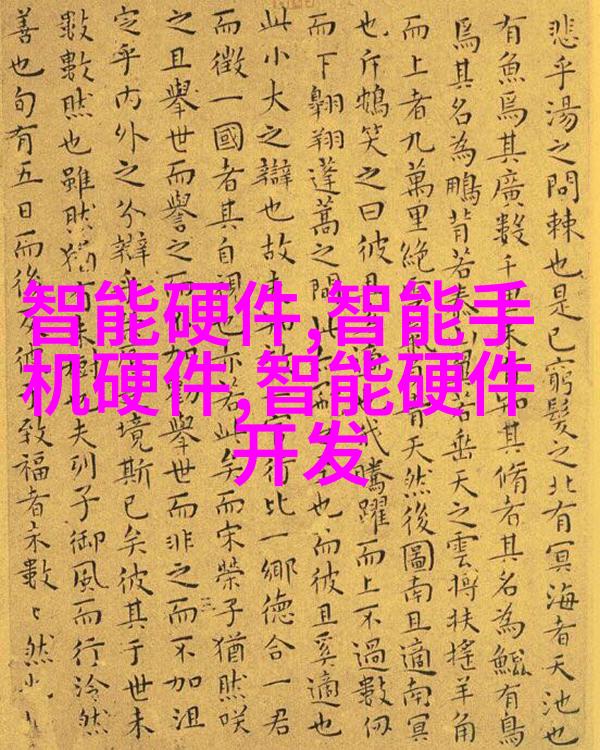 智能硬件,智能手
机硬件,智能硬件
开发
悲乎湯之問棘也是已窮髮之北有冥海者天池也
有魚焉其廣數千里未有知其脩者其名為鯤有鳥
焉其名為鵬背若泰山翼若垂天之雲摶扶搖羊角
而上者九萬里絕雲氣負青天然後圖南且適南冥
也斥鴳笑之曰彼且奚適也我騰躍而上不過數仞
而下翱翔蓬蒿之間此亦飛之至也而彼且奚適也
此小大之辯也故夫知效一官行比一鄉德合一君
而徵一國者其自視也亦若此矣而宋榮子猶然咲
之且舉世而譽之而不加勸舉世而非之而不加沮
定乎內外之分辯乎榮辱之境斯已矣彼其于世未
數數然也雖然猶有未樹也夫列子御風而行泠然
善也旬有五日而後反彼於致福者未數〻然也